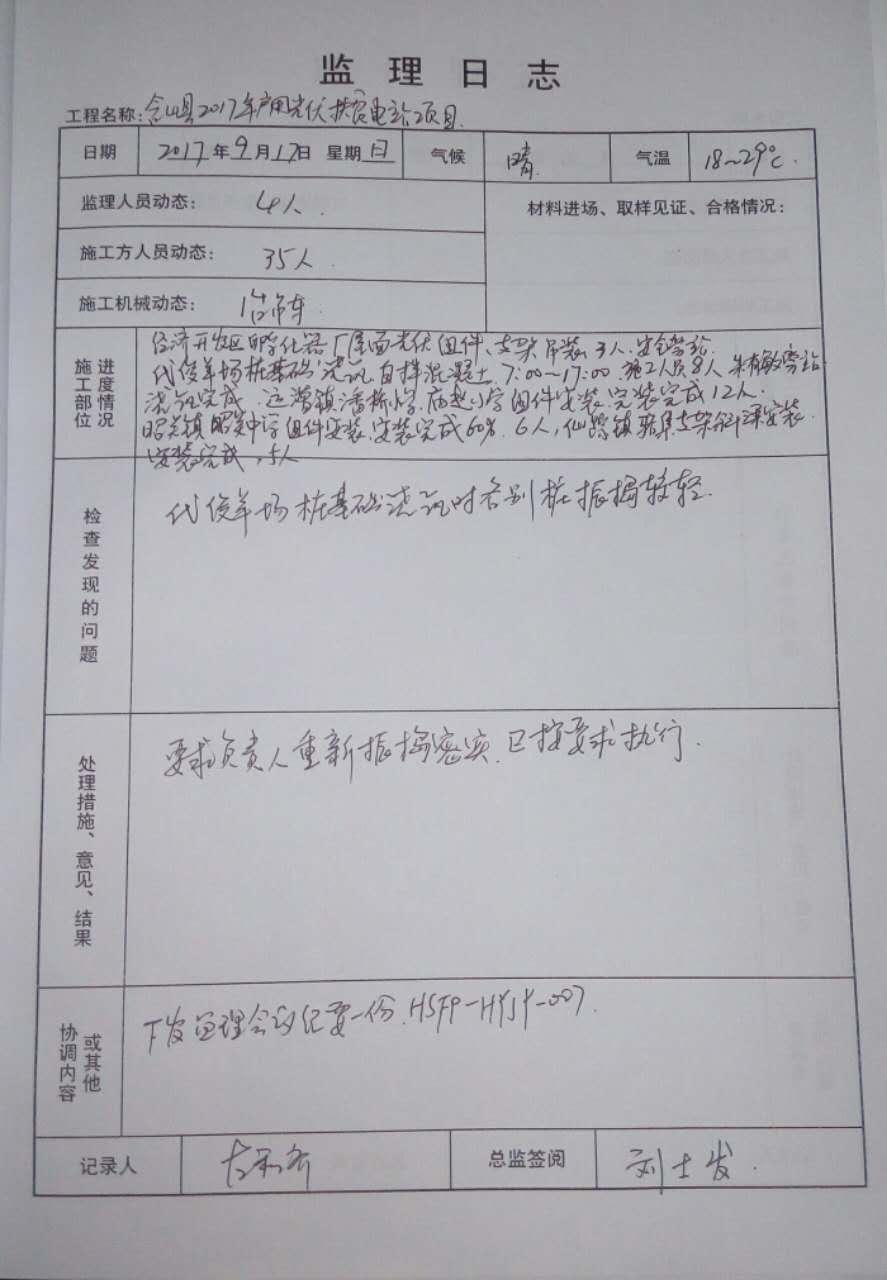 监理日志
工程名称:含山县2017年户用光伏扶贫电站项目
日期 2017年9月17日 星期日 气候 晴 气温 18~29℃.
监理人员动态: 4人.
材料进场、取样见证、合格情况:
施工方人员动态: 35人.
施工机械动态: 1台吊车
施工部位 进度情况
经济开发区孵化器厂屋面光伏组件、支架吊装 3人.安全
代俊羊场桩基础浇筑.自拌混凝土.7:00~17:00.施工人员8人 朱有敏旁站
浇筑完成.运漕镇潘桥小学. 赵小学组件安装.安装完成12人.
昭关镇昭关中学组件安装.安装完成60%.6人,仙踪镇 集支架斜梁安装.
安装完成,5人
检查发现的问题
代俊羊场桩基础浇筑时各别桩振捣较轻.
处理措施、意见、结果
要求负责人重新振捣密实.已按要求执行.
协调内容 或其他
下发监理会议纪要一份.HSFP-HYJY-007.
记录人 总监签阅 刘士发.